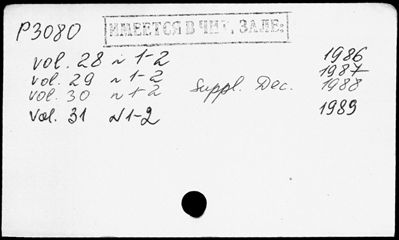 P3080
ИМЕЕТСЯ В ЧИТ. ЗАЛЕ:
vol. 28 N 1-2 1986
vol. 29 N 1-2 1987
vol. 30 N 1-2 Suppl. Dec. 1988
vol. 31 N1-2 1989